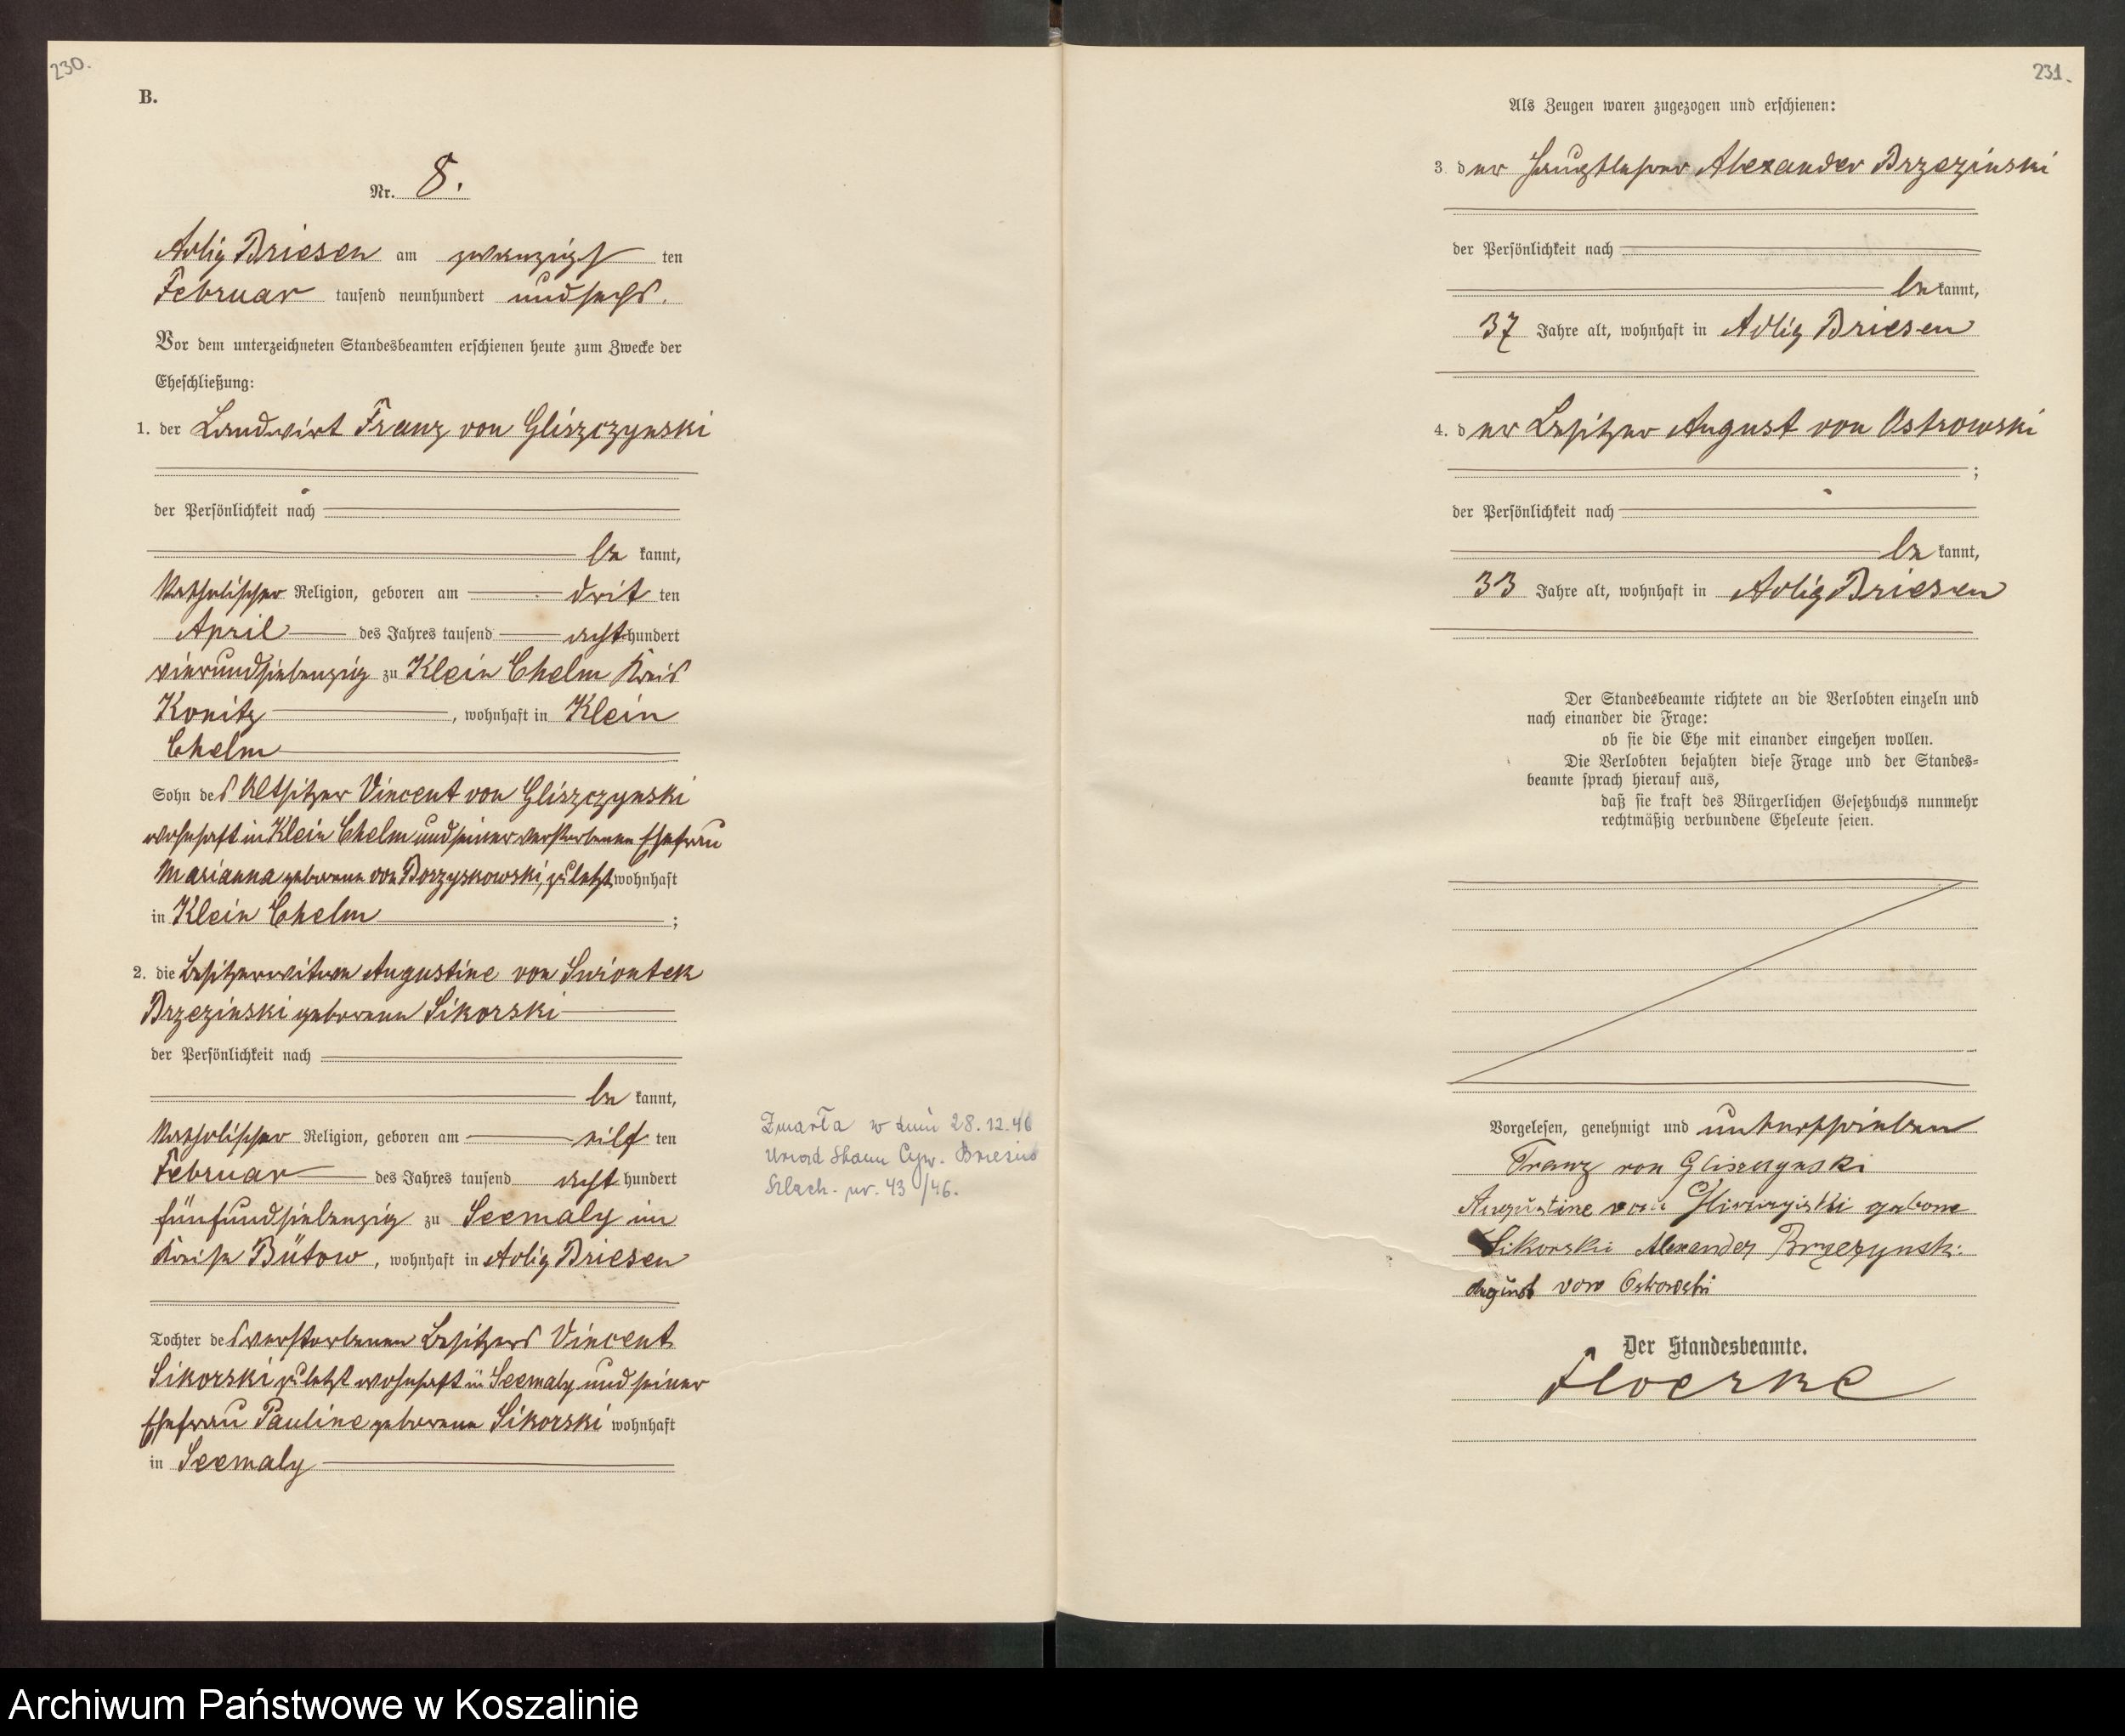 230.
B.
Nr. 8.
Adlig Briesen am zwanzigsten
Februar tausend neunhundert und sechs.
Vor dem unterzeichneten Standesbeamten erschienen heute zum Zwecke der
Eheschließung:
1. der Landwirt Franz von Gliszczynski
der Persönlichkeit nach
bekannt,
katholischer Religion, geboren am dritten
April des Jahres tausend achthundert
vierundsiebenzig zu Klein Chelm Kreis
Konitz, wohnhaft in Klein
Chelm
Sohn des Altsitzer Vincent von Gliszczynski
wohnhaft in Klein Chelm und seiner verstorbenen Ehefrau
Marianna geborene von Borzyskowski, zuletzt wohnhaft
in Klein Chelm ;
2. die Besitzerwitwe Augustine von Swiontek
Brzezinski geborene Sikorski
der Persönlichkeit nach
bekannt,
katholischer Religion, geboren am eilften
Februar des Jahres tausend achthundert
fünfundsiebenzig zu Seemaly im
Kreise Bütow, wohnhaft in Adlig Briesen
Tochter des verstorbenen Besitzers Vincent
Sikorski zuletzt wohnhaft in Seemaly und seiner
Ehefrau Pauline geborene Sikorski wohnhaft
in Seemaly
Zmarła w dniu 28.12.46
Urząd Stanu Cyw.
Szlach. nr. 43/46.
231.
Als Zeugen waren zugezogen und erschienen:
3. der Hauptlehrer Alexander Brzezinski
der Persönlichkeit nach
bekannt,
37 Jahre alt, wohnhaft in Adlig Briesen
4. der Besitzer August von Ostrowski
;
der Persönlichkeit nach
bekannt,
33 Jahre alt, wohnhaft in Adlig Briesen
Der Standesbeamte richtete an die Verlobten einzeln und
nach einander die Frage:
ob sie die Ehe mit einander eingehen wollen.
Die Verlobten bejahten diese Frage und der Standes-
beamte sprach hierauf aus,
daß sie kraft des Bürgerlichen Gesetzbuchs nunmehr
rechtmäßig verbundene Eheleute seien.
Vorgelesen, genehmigt und unterschrieben
Franz von Gliszczynski
Augustine von Gliszczynski geborne
Sikorski Alexander Brzezynski
August von Ostrowski
Der Standesbeamte.
Archiwum Państwowe w Koszalinie